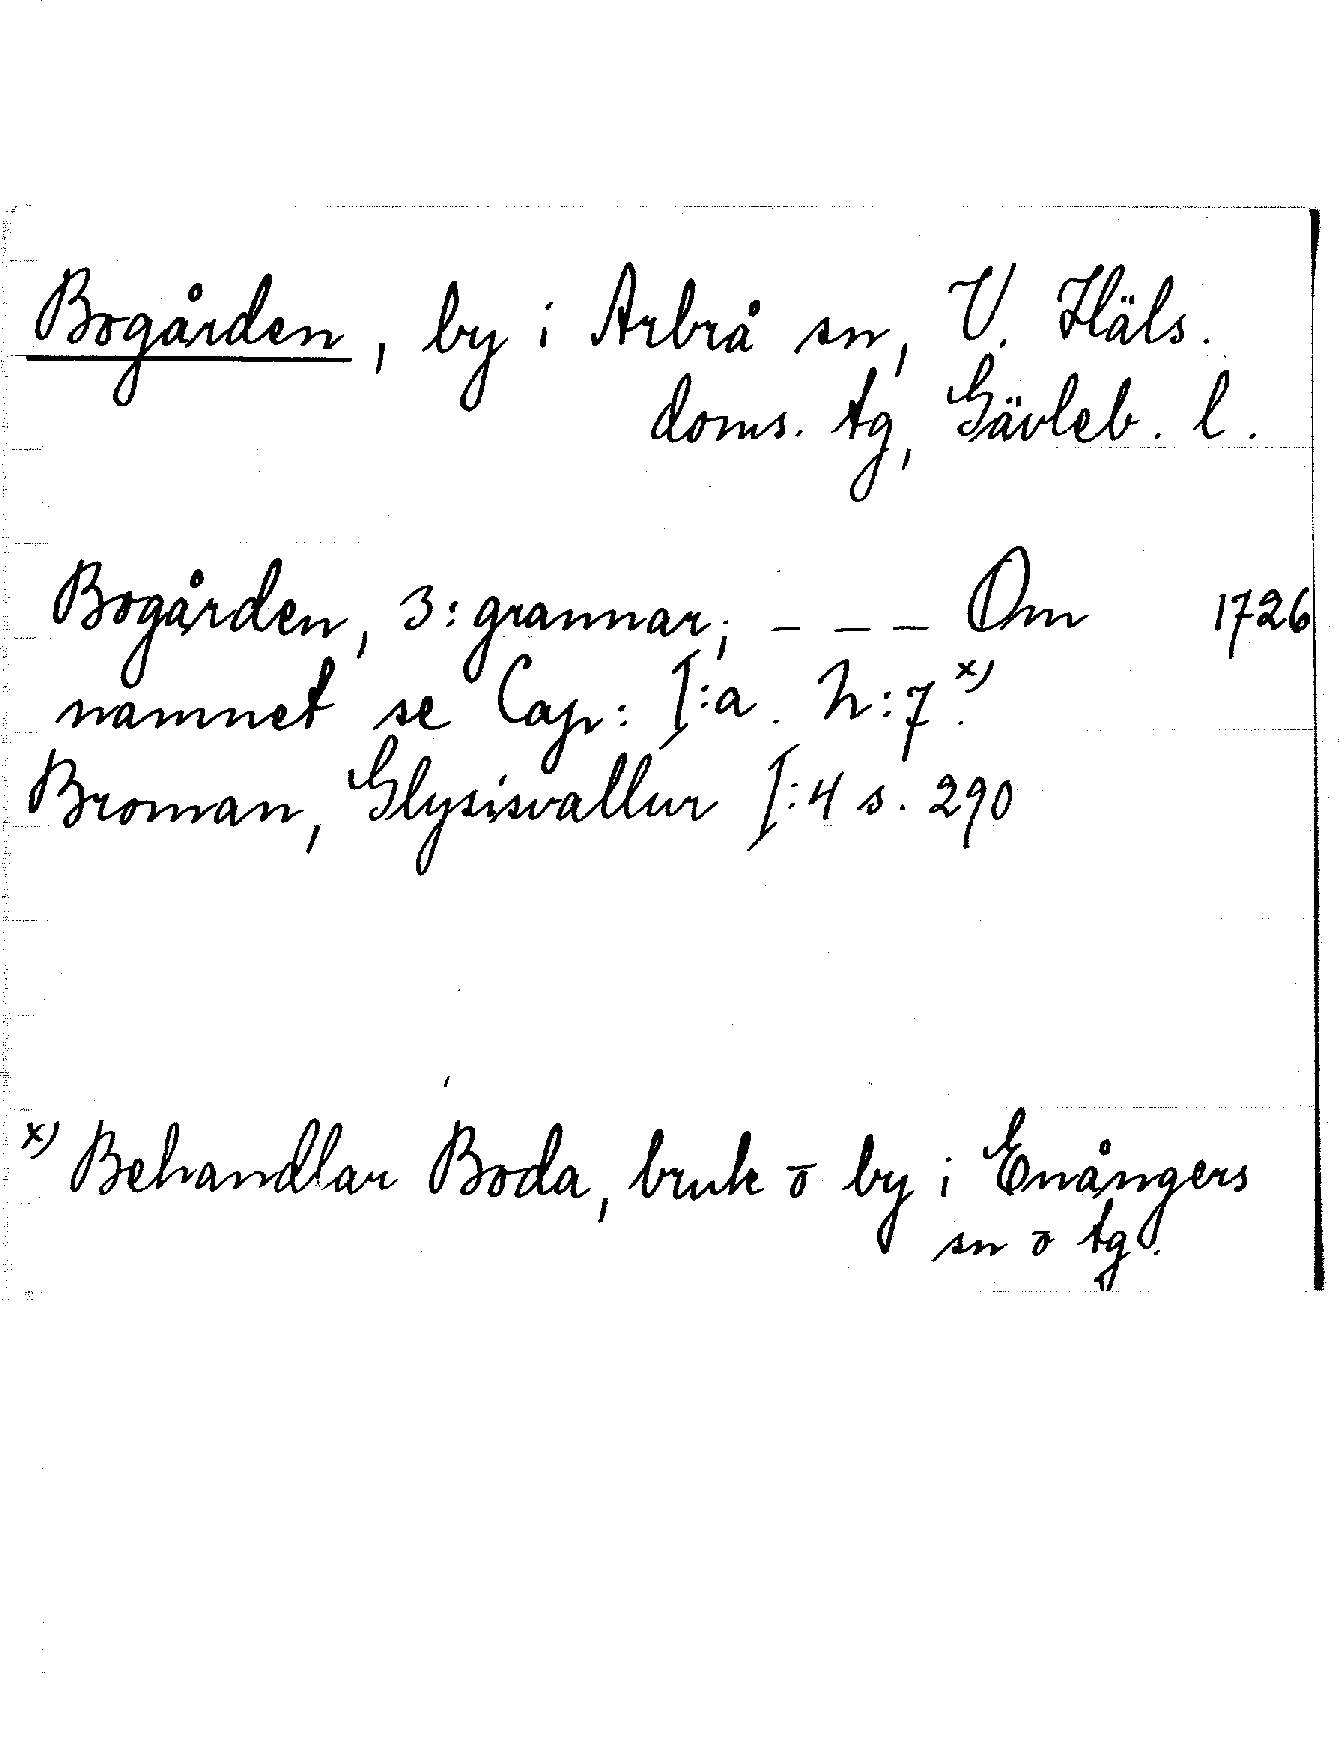 Bogården, by i Arbrå sn, V. Häls.
doms. tg, Gävleb. l.
Bogården, 3: grannar; - - - Om 1726
namnet se Cap: I:a. h:7.x)
Broman, Glysisvallur I:4 s. 290
x) Behandlar Boda, bruk o by i Enångers
sn o tg.